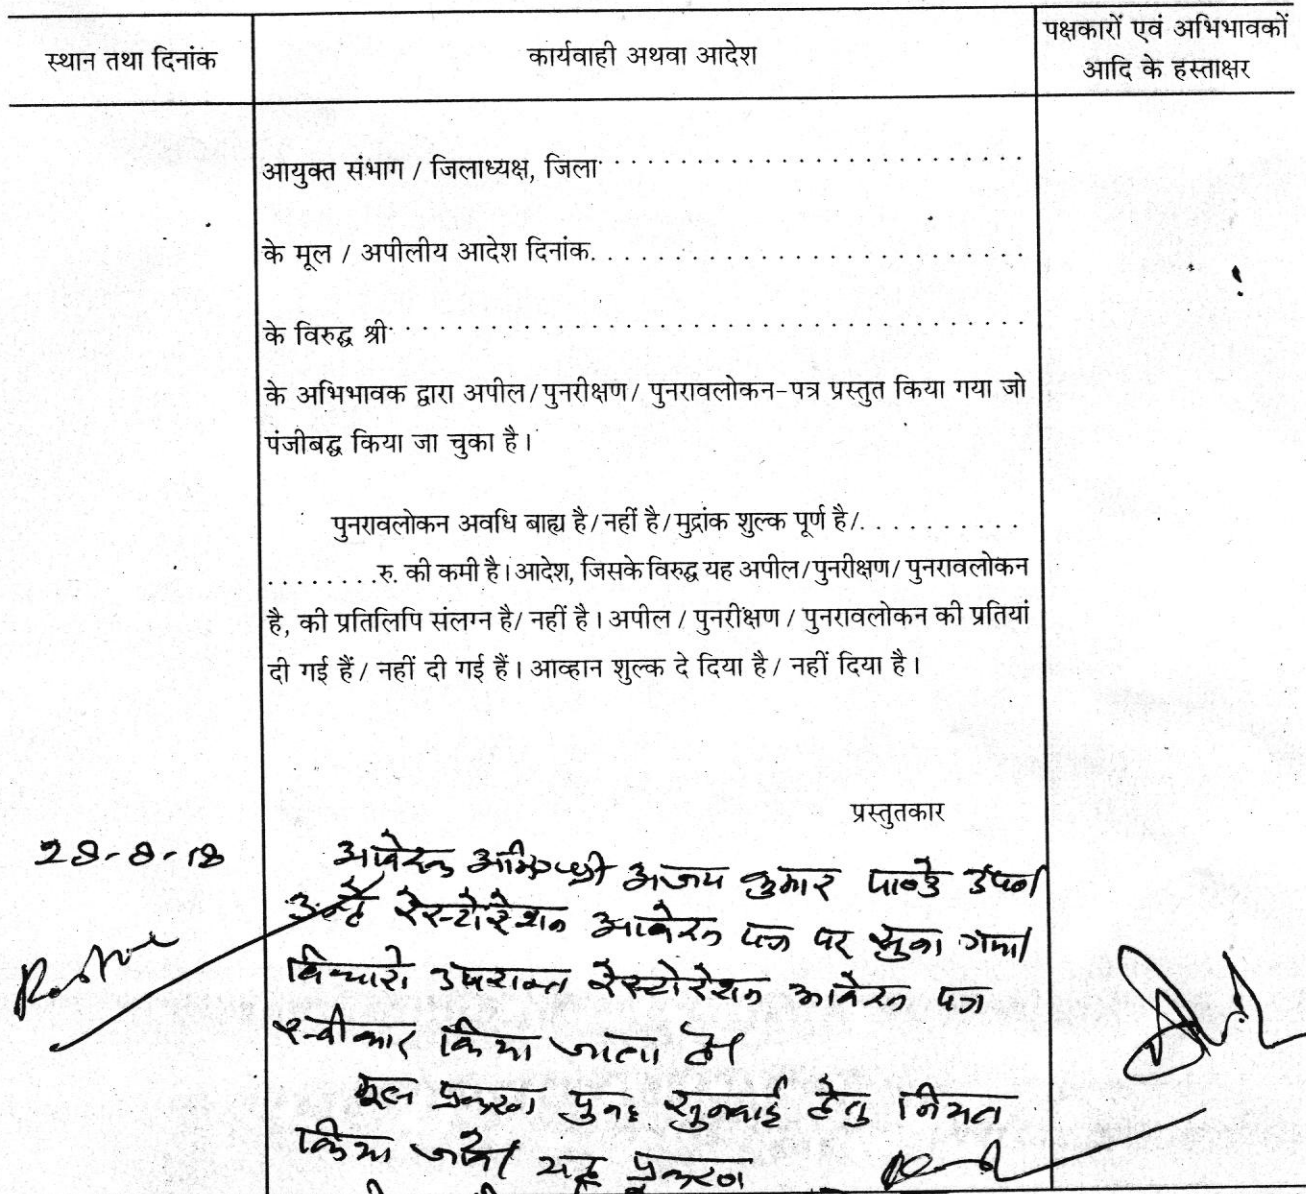 स्थान तथा दिनांक
कार्यवाही अथवा आदेश
पक्षकारों एवं अभिभावकों
आदि के हस्ताक्षर
आयुक्त संभाग / जिलाध्यक्ष, जिला . . . . . . . . . . . . . . . . . . . . . . . . . .
के मूल / अपीलीय आदेश दिनांक. . . . . . . . . . . . . . . . . . . . . . . . . .
के विरुद्ध श्री . . . . . . . . . . . . . . . . . . . . . . . . . . . . . . . . . . . . .
के अभिभावक द्वारा अपील/पुनरीक्षण/ पुनरावलोकन-पत्र प्रस्तुत किया गया जो
पंजीबद्ध किया जा चुका है।
पुनरावलोकन अवधि बाह्य है/नहीं है/मुद्रांक शुल्क पूर्ण है/. . . . . . . . . .
. . . . . . . .रु. की कमी है। आदेश, जिसके विरुद्ध यह अपील/पुनरीक्षण/ पुनरावलोकन
है, की प्रतिलिपि संलग्न है/ नहीं है। अपील / पुनरीक्षण / पुनरावलोकन की प्रतियां
दी गई हैं/ नहीं दी गई हैं। आव्हान शुल्क दे दिया है/ नहीं दिया है।
प्रस्तुतकार
28-8-18
आवेदक अभि० श्री अजय कुमार पाण्डे उप०।
उन्हें रेस्टोरेशन आवेदन पत्र पर सुना गया।
विचारो उपरान्त रेस्टोरेशन आवेदन पत्र
स्वीकार किया जाता है।
मूल प्रकरण पुनः सुनवाई हेतु नियत
किया जावे। यह प्रकरण